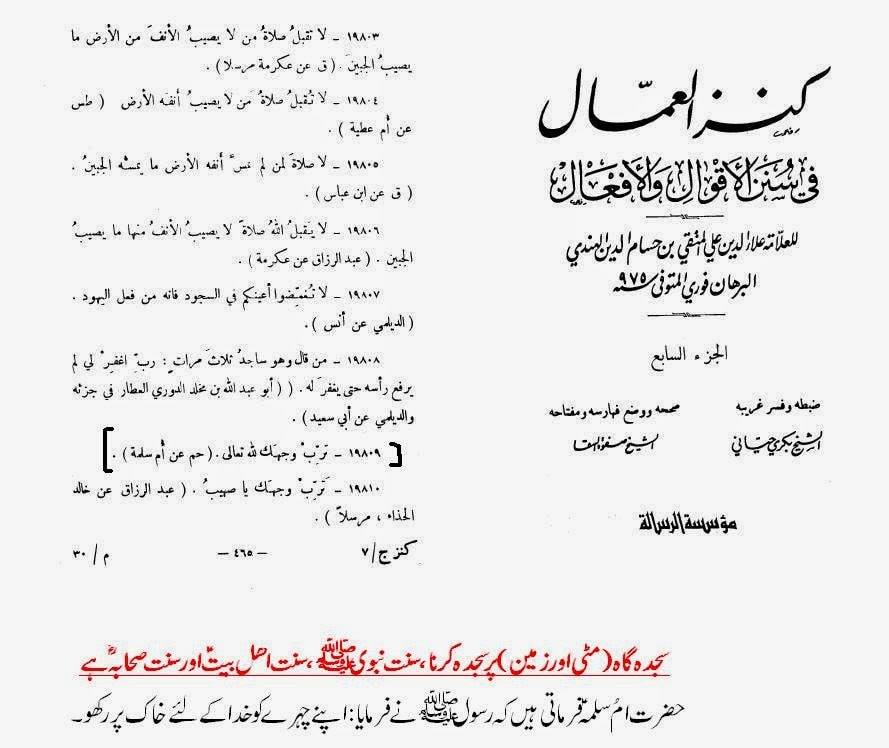 كنز العمّال
في سُنَنِ الأقوالِ وَالأفعَالِ
للعلّامة علاء الدين علي المتقي بن حسام الدين الهندي
البرهان فوري المتوفى سنة ٩٧٥
الجزء السابع
ضبطه وفسر غريبه
الشيخ بكري حيّاني
صححه ووضع فهارسه ومفتاحه
الشيخ صفوة السقا
مؤسسة الرسالة
١٩٨٠٣ – لا تقبلُ صلاةُ من لا يصيبُ الأنفَ من الأرض ما
يصيبُ الجبينَ . ( ق عن عكرمة مرسلا ) .
١٩٨٠٤ – لا تُقبلُ صلاةُ مَن لا يصيبُ أنفَه الأرض ( طس
عن أم عطية ) .
١٩٨٠٥ – لا صلاةَ لمن لم يمسَّ أنفه الأرضَ ما يمسّه الجبينُ .
( ق عن ابن عباس ) .
١٩٨٠٦ – لا يَقبلُ اللهُ صلاةً لا يصيبُ الأنفُ منها ما يصيبُ
الجبين . ( عبد الرزاق عن عكرمة ) .
١٩٨٠٧ – لا تُغمِّضوا أعينكم في السجود فانه من فعل اليهود .
( الديلمي عن أنس ) .
١٩٨٠٨ – من قال وهو ساجدُ ثلاثَ مرات : ربِّ اغفِرْ لي لم
يرفع رأسه حتى يغفرَ له . ( ( أبو عبد الله بن مخلد الدوري العطار في جزئه
والديلمي عن أبي سعيد ) .
[ ١٩٨٠٩ – تَرِّبْ وجهَك لله تعالى . ( حم عن أم سلمة ) . ]
١٩٨١٠ – تَرِّبْ وجهَك يا صهيبُ . ( عبد الرزاق عن خالد
الحذاء ، مرسلاً ) .
كنز ج/٧ – ٤٦٥ – م / ٣٠
سجدہ گاہ ( مٹی اور زمین ) پر سجدہ کرنا ، سنت نبوی ﷺ ، سنت اھل بیتؑ اور سنت صحابہؓ ہے
حضرت ام سلمہؓ فرماتی ہیں کہ رسول ﷺ نے فرمایا : اپنے چہرے کو خدا کے لئے خاک پر رکھو۔